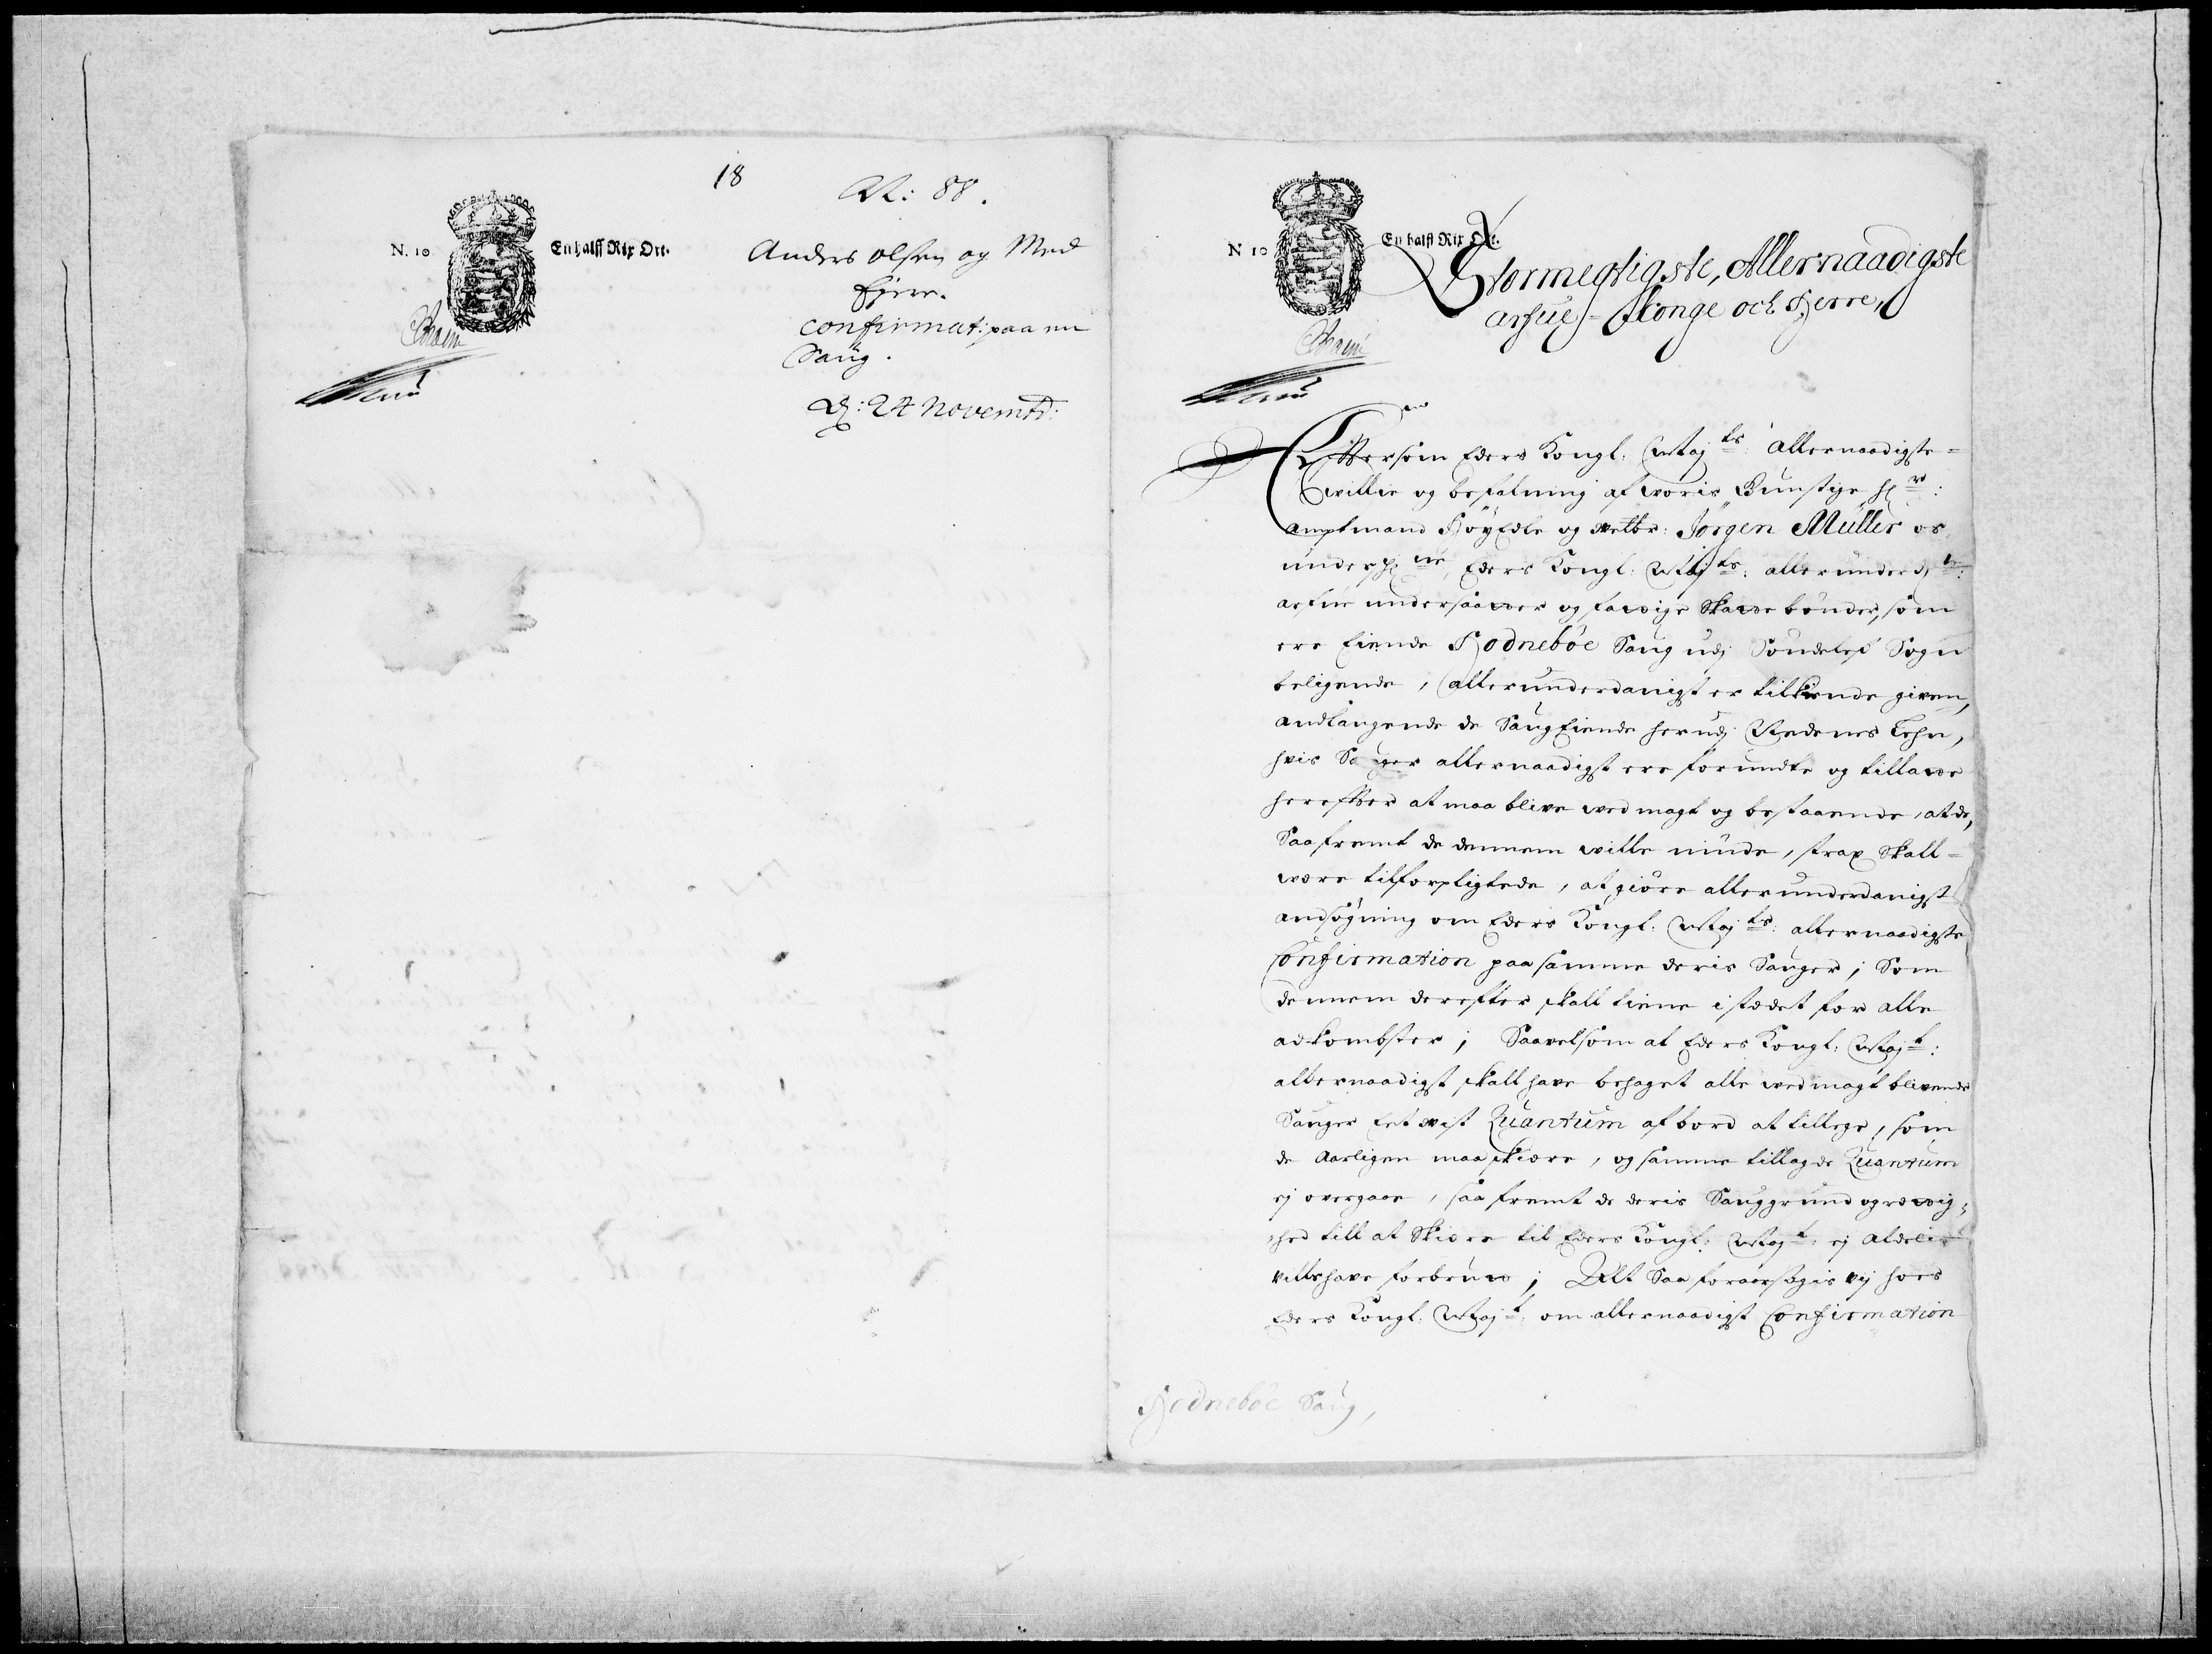 18
N: 88.
N. 10
En halff Rix Ort.
Anders Olsen og Med
Ejere.
confirmat: paa en
Saug.
D: 24 Novembr:
N 10
En halff Rix Ort.
Stormegtigste, Allernaadigste
arfue-Konge och Herre,
Effersom Eders Kongl: Maj ts: allernaadigste
willie og befalning af woris Gunstige H r:
amptmand HöyEdle og welbr: Jörgen Müller os
under Eders Kongl: Maj ts: allerunderd
arfue undersaatter og fattige Skatte bönder, som
ere Eiende Hodneböe Saug udj Söndelef Sogn
beligende, allerunderdanigst er tilkiende given,
andlangende de Saug Eiende her udj Nedenes Lehn,
hvis Sauger allernaadigst ere forundte og tilladte
hereffter at maa blive wed magt og bestaaende, at de,
Saafremt de dennem wille niude, strax Skall
være tilforpligtede, at giöre allerunderdanigst
andsögning om Eders Kongl: Maj ts: allernaadigste
Confirmation paa samme deris Sauger; Som
dennem derefter skall tiene i stædet for alle
adkombster; Saavelsom at Eders Kongl: Maj t:
allernaadigst skall have behaget alle wed magt blivende
Sauger Eet vist Quantum af bord at tillege, som
de Aarligen maa skiære, og samme tillagde Quantum
ej overgaae, saa fremt de deris Sauggrund og rettig-
hed till at Skiære til Eders Kongl: Maj t: ej aldelis
ville have forbrut; Alt Saa foraarsagis vij hoes
Eders Kongl: Maj t: om allernaadigst Confirmation
Hodneböe Saug,